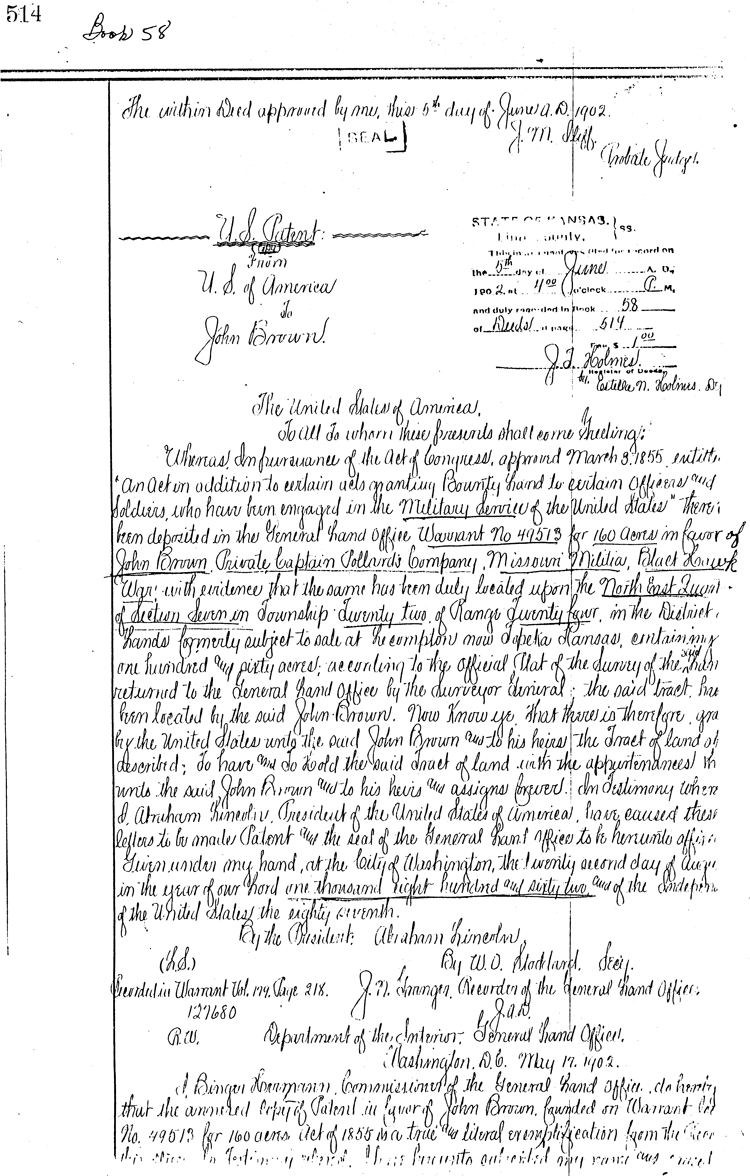 514
Book 58
The within Deed approved by me, this 5th day of June A.D. 1902.
[SEAL]
J. M.
Probate Judge.
U.S. Patent:
From
U.S. of America
To
John Brown.
STATE OF KANSAS, } ss.
Linn County,
This instrument was filed for record on
the 5th day of June A. D.,
1902 at 4 00 o'clock P. M.
and duly recorded in Book 58
of Deeds at page 514
Fees $ 1 00
J. T. Holmes.
Register of Deeds
by Estella N. Holmes. Dy
The United States of America,
To All To whom these presents shall come Greeting:
Whereas, In pursuance of the Act of Congress, approved March 3, 1855, entitle
"An Act in addition to certain acts granting Bounty Land to certain Officers and
Soldiers, who have been engaged in the Military Service of the United States" there
been deposited in the General Land Office Warrant No 49513 for 160 Acres in favor of
John Brown, Private, Captain Pollard's Company, Missouri Militia, Black Hawk
War; with evidence that the same has been duly located upon the North East Quart
of Section Seven in Township Twenty two, of Range Twenty four, in the District
Lands formerly subject to sale at Lecompton now Topeka Kansas, containing
one hundred and sixty acres; according to the Official Plat of the Survey of the said Lan
returned to the General Land Office by the Surveyor General; the said tract has
been located by the said John Brown. Now Know ye, That there is therefore, gra
by the United States unto the said John Brown and to his heirs the Tract of land ab
described; To have and To Hold the said Tract of land with the appurtenances th
unto the said John Brown and to his heirs and assigns forever. In Testimony where
I, Abraham Lincoln, President of the United States of America, have caused these
letters to be made Patent and the seal of the General Land Office to be hereunto affix
Given under my hand, at the City of Washington, the twenty second day of Augu
in the year of our Lord one thousand eight hundred and sixty two and of the Indepen
of the United States the eighty seventh.
By the President: Abraham Lincoln,
(L.S.) By W. O. Stoddard, Secy.
Recorded in Warrant Vol. 179, Page 218. J. N. Granger, Recorder of the General Land Office,
127680 J.A.W.
R.W. Department of the Interior, General Land Office,
Washington, D.C. May 17, 1902.
I, Binger Hermann, Commissioner of the General Land Office, do hereby
that the annexed copy of Patent in favor of John Brown, founded on Warrant
No. 49513 for 160 acres, Act of 1855 is a true and literal exemplification from the
this office. In Testimony whereof, I have hereunto subscribed my name and caused